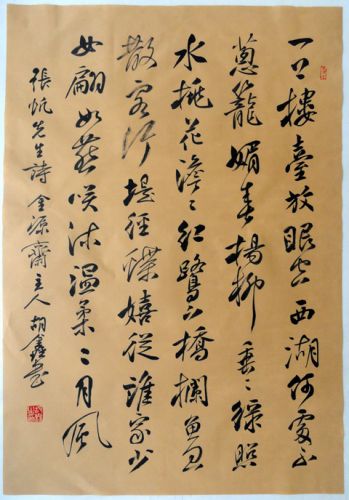 一上樓臺放眼空西湖何處不
蔥籠媚春楊柳垂々綠照
水桃花澹々紅鷺下橋欄魚忽
散客行堤徑蝶嬉從誰家少
女翩如燕咲沐溫柔二月風
張帆先生詩金源齋主人胡鑫書